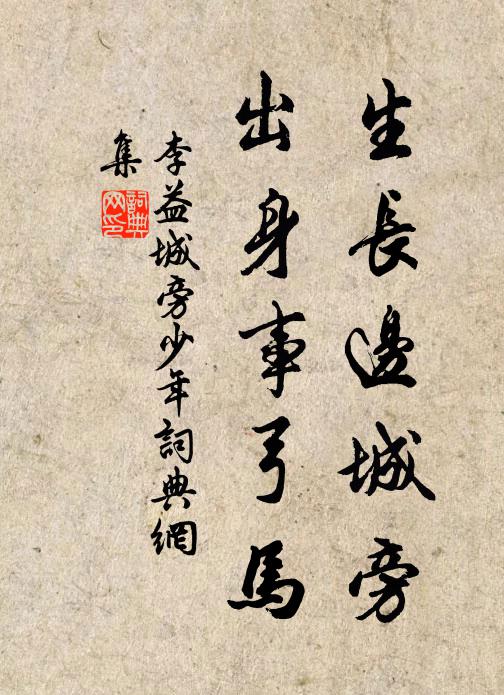 生長邊城旁
出身事弓馬
李益城旁少年詞典網
集
詞典
网印